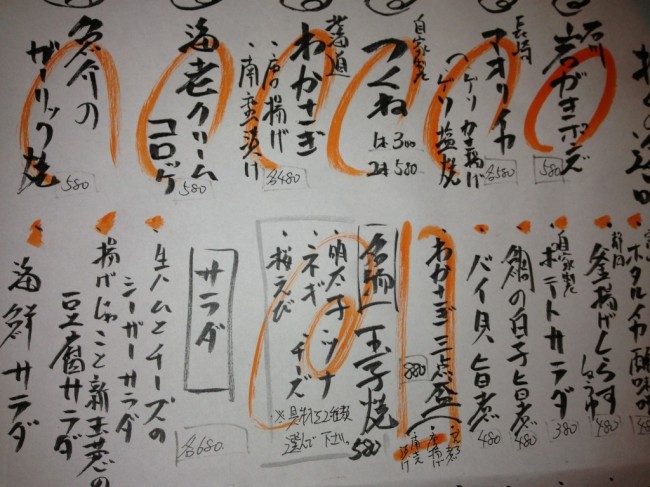 石川
岩がきポン酢
580
長崎
アオリイカ
・ゲソかき揚げ
・ゲソ塩焼
各580
自家製
つくね
1本 300
2本 580
北海道
わかさぎ
・唐揚げ
・南蛮漬け
各480
海老クリーム
コロッケ
580
魚介の
ガーリック焼
580
ホタルイカ
静岡
釜揚げしらす
480
自家製
ポテトサラダ
380
鯛の白子旨煮
480
バイ貝旨煮
480
わかさぎ三点盛
880
名物 玉子焼
580
明太子 ツナ
ネギ チーズ
桜えび
※具材を2種類
選んで下さい。
サラダ
各680
生ハムとチーズの
シーザーサラダ
揚げじゃこと新玉葱の
豆腐サラダ
海鮮サラダ